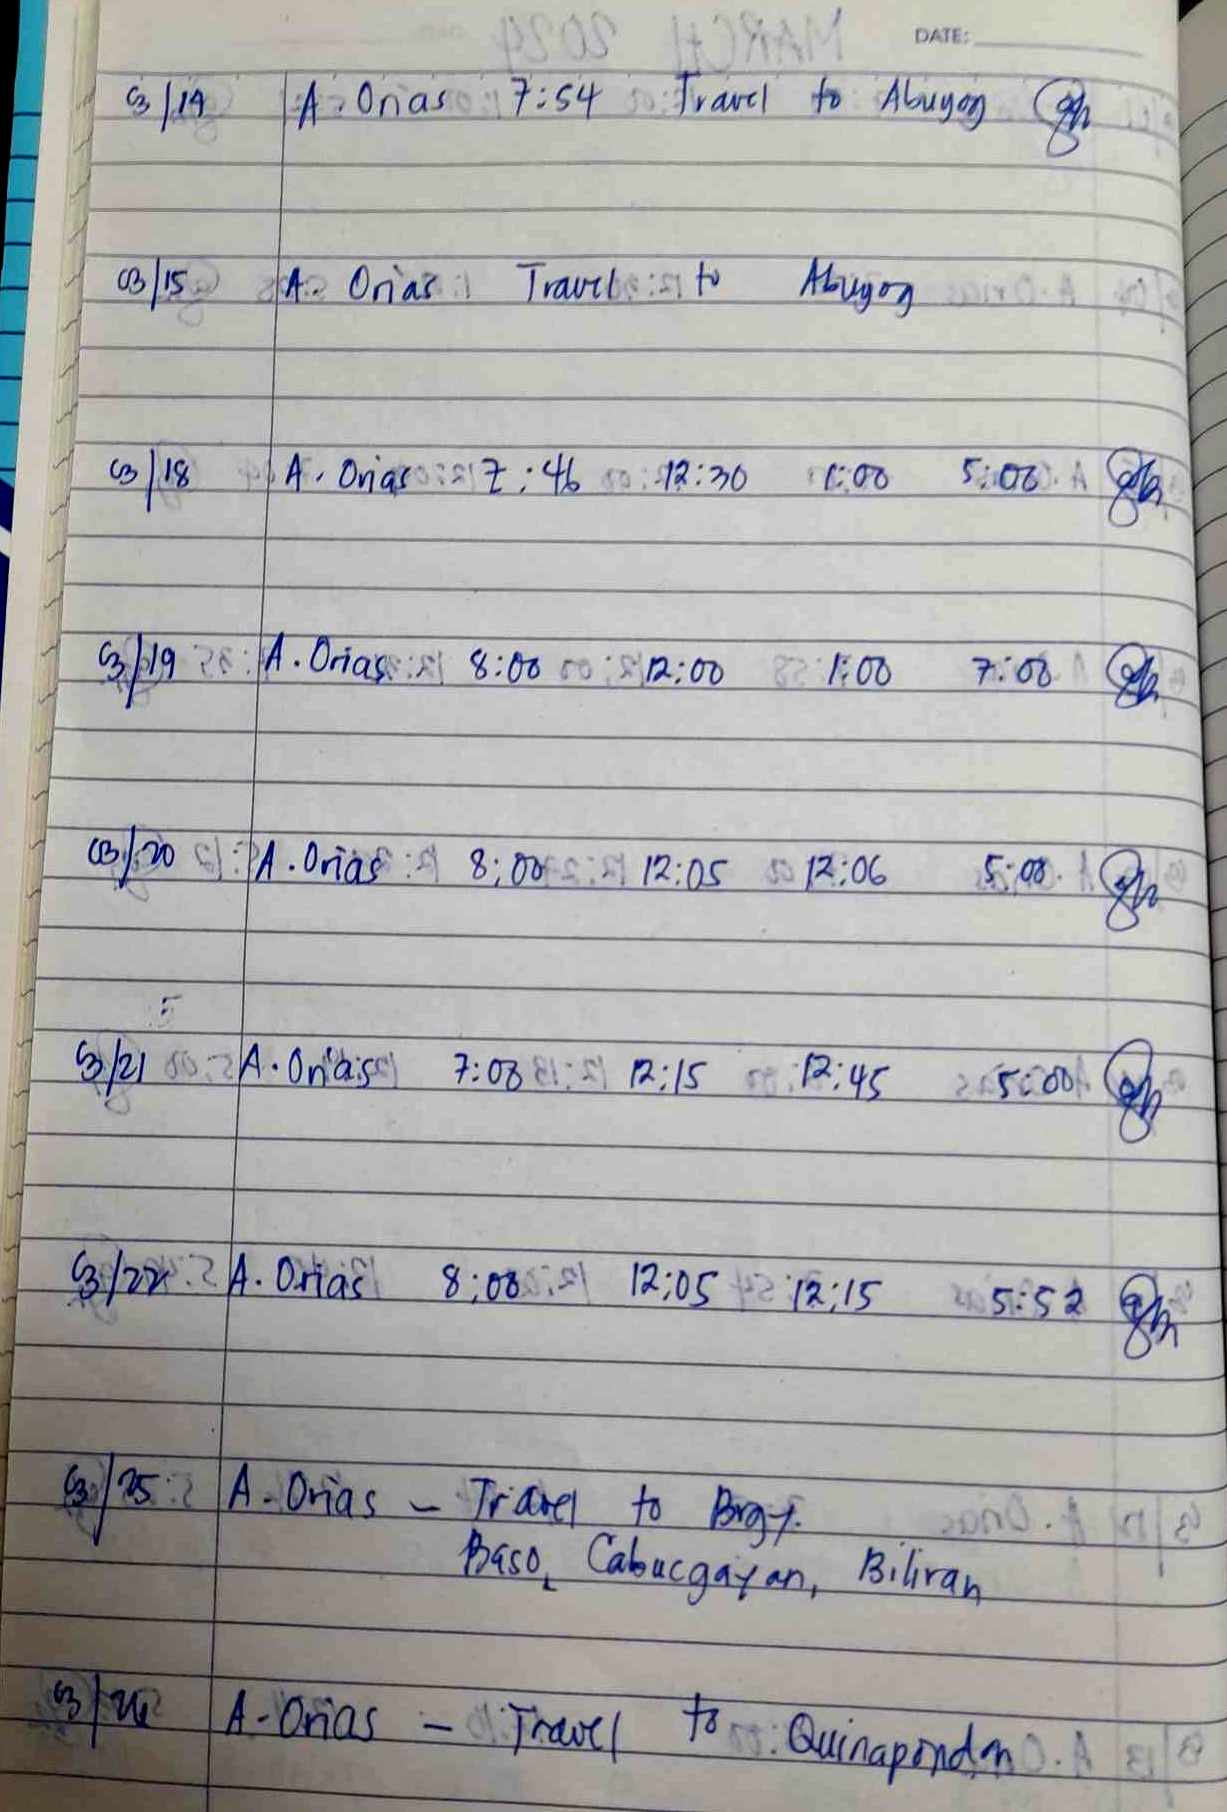 DATE:
03/14 A. Orias 7:54 Travel to Abuyog
03/15 A. Orias Travel to Abuyog
03/18 A. Orias 7:46 12:30 1:00 5:00
03/19 A. Orias 8:00 12:00 1:00 7:00
03/20 A. Orias 8:00 12:05 12:06 5:00
03/21 A. Orias 7:00 12:15 12:45 5:00
03/22 A. Orias 8:00 12:05 12:15 5:52
03/25 A. Orias - Travel to Brgy.
Baso, Cabucgayan, Biliran
03/26 A. Orias - Travel to Quinapondan